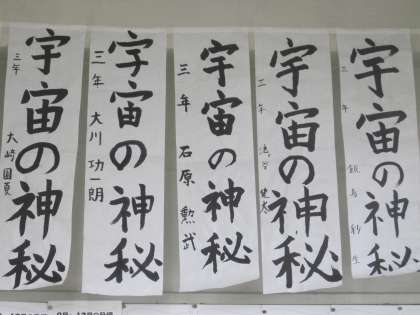 宇宙の神秘
三年
宇宙の神秘
三年 石原 勲武
宇宙の神秘
三年 大川 功一朗
宇宙の神秘
三年
宇宙の神秘
三年